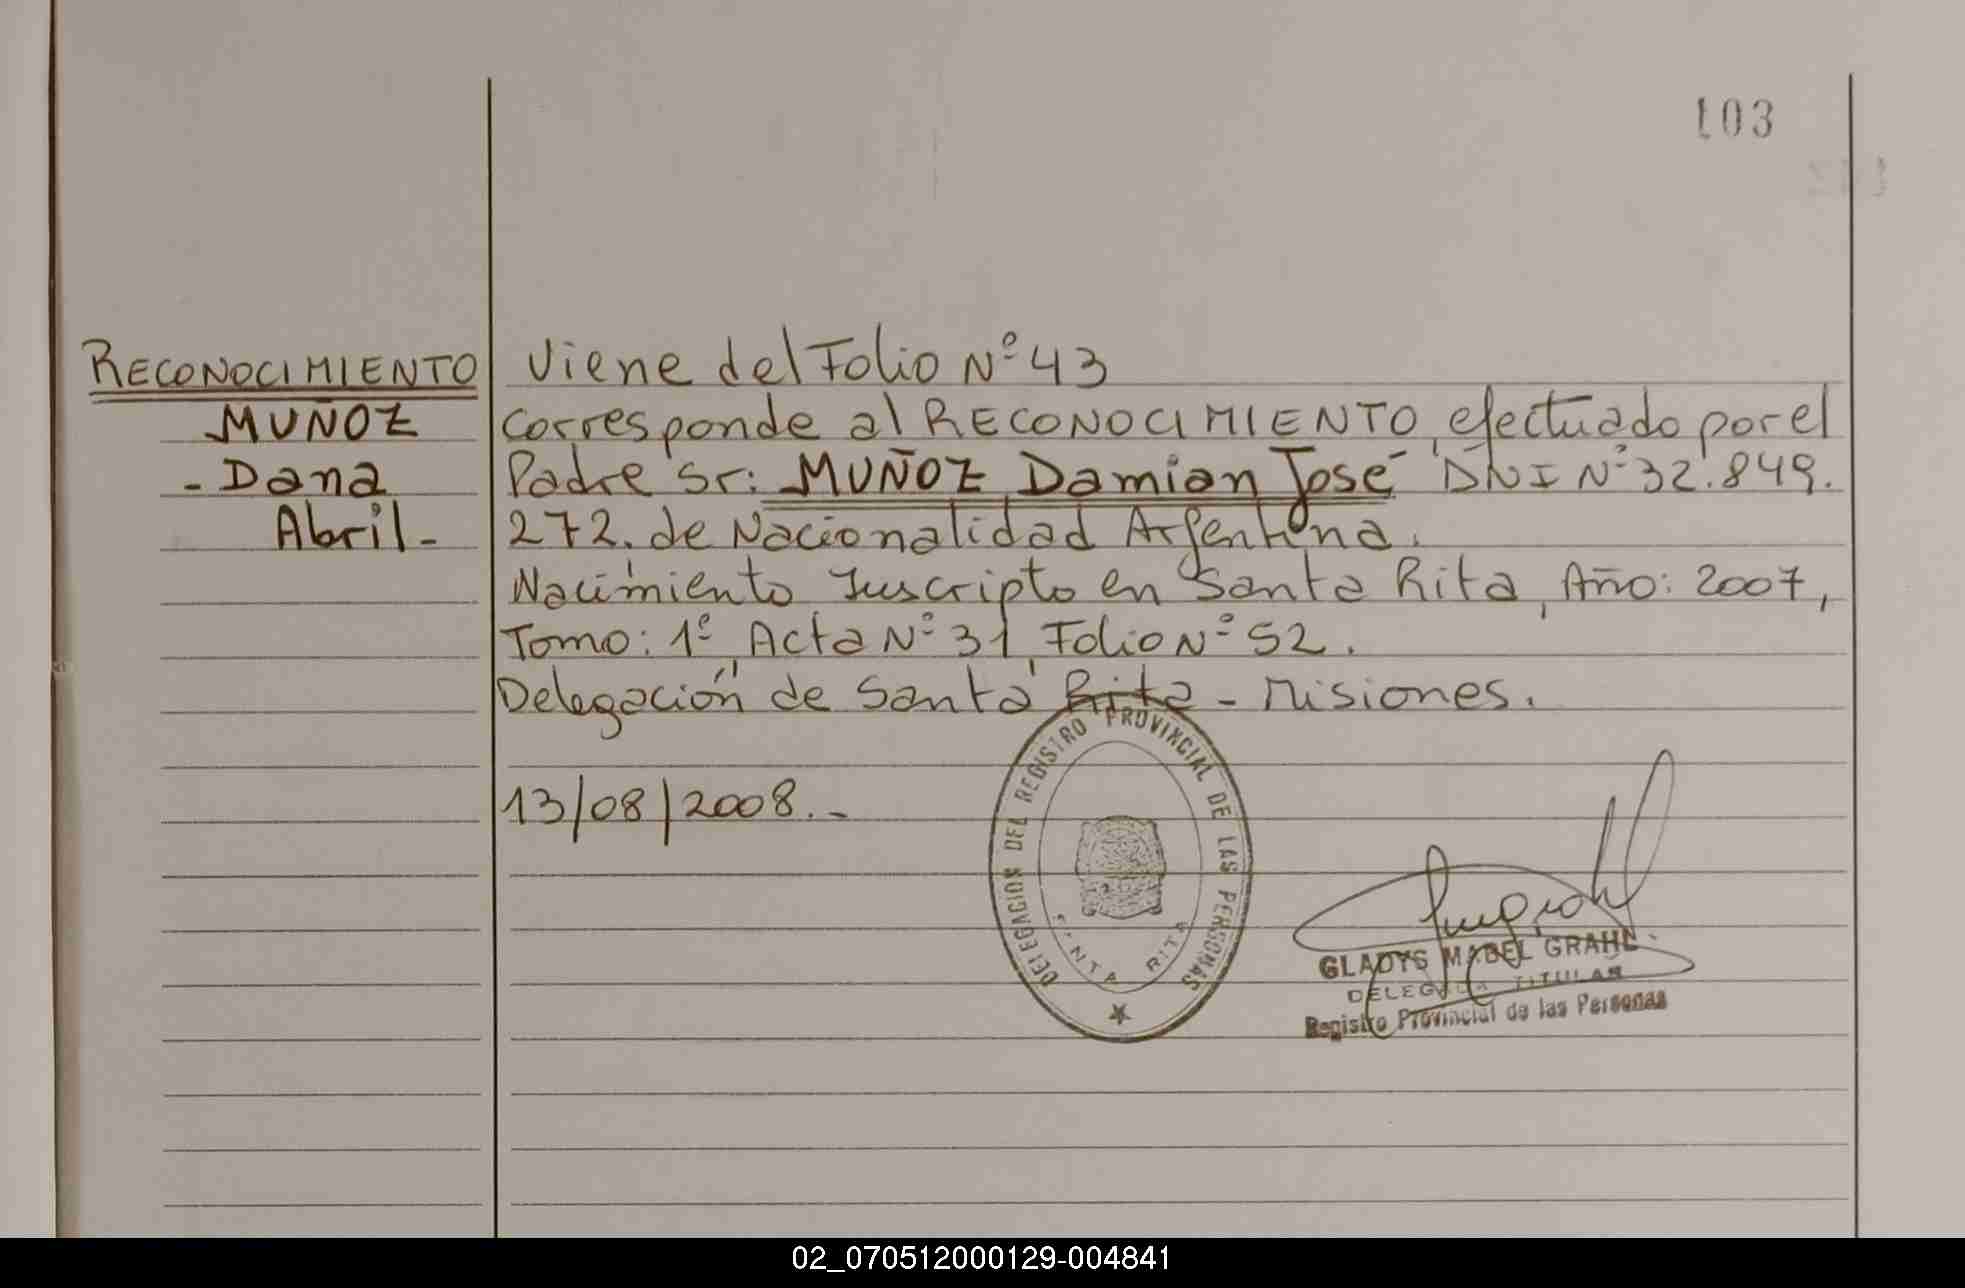 103
RECONOCIMIENTO
MUÑOZ
- Dana
Abril -
Viene del Folio Nº 43
Corresponde al RECONOCIMIENTO, efectuado por el
Padre Sr: MUÑOZ, Damian José DNI Nº 32.849.
272. de Nacionalidad Argentina.
Nacimiento Inscripto en Santa Rita, Año: 2007,
Tomo: 1º, Acta Nº 31, Folio Nº 52.
Delegación de Santa Rita - Misiones.
13/08/2008.-
DELEGACION DEL REGISTRO PROVINCIAL DE LAS PERSONAS
SANTA RITA
GLADYS MABEL GRAHL
DELEGADA TITULAR
Registro Provincial de las Personas
02_070512000129-004841